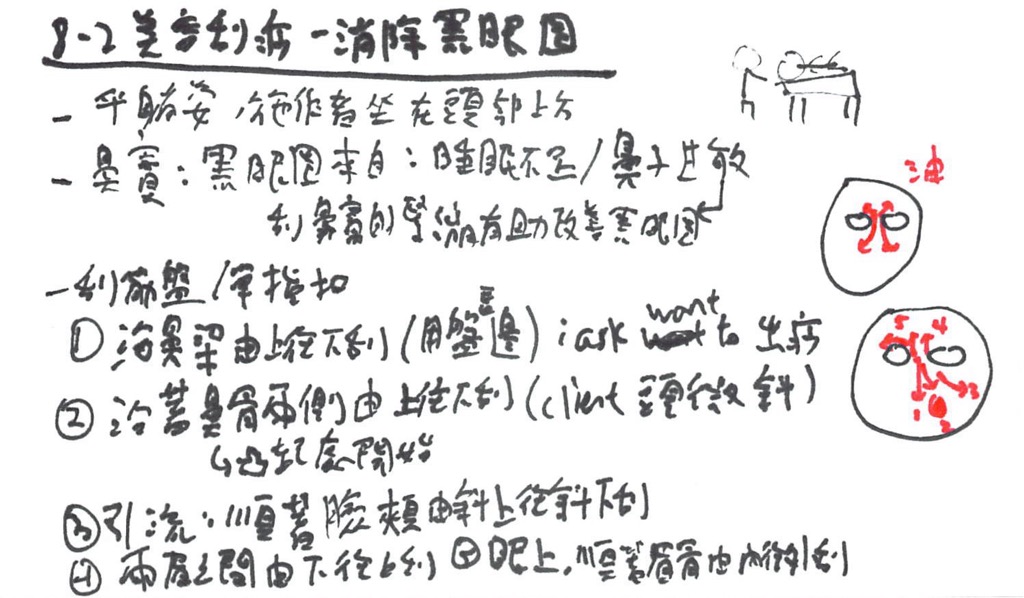 8-2 美容刮痧-消除黑眼圈
- 平躺姿,施作者坐在頭部上方
- 鼻竇:黑眼圈來自:睡眠不足/鼻子过敏
刮鼻竇的緊繃有助改善黑眼圈
油
- 刮痧盤/單指扣
① 沿鼻梁由上往下刮(用盤邊) i ask want to 出痧
② 沿著鼻骨兩側由上往下刮(client 頭微斜)
↳凸起處開始
5 4
1 2 3
③ 引流:順著臉頰由斜上往斜下刮
④ 兩眉之間由下往上刮 ⑤ 眼上,順著眉骨由內往外刮